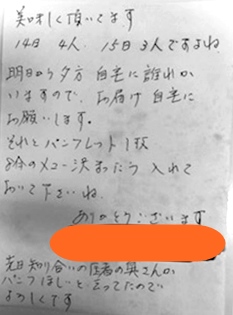 美味しく頂いてます
14日 4人、15日3人ですよね
明日から夕方 自宅に誰れか
いますので、お届け 自宅に
お願いします。
それとパンフレット1枚
8今のメニュー決まったら 入れて
おいて下さいね
ありがとうございます
先日知り合いの医者の奥さんが
パンフほしいと言ってたので
よろしくです